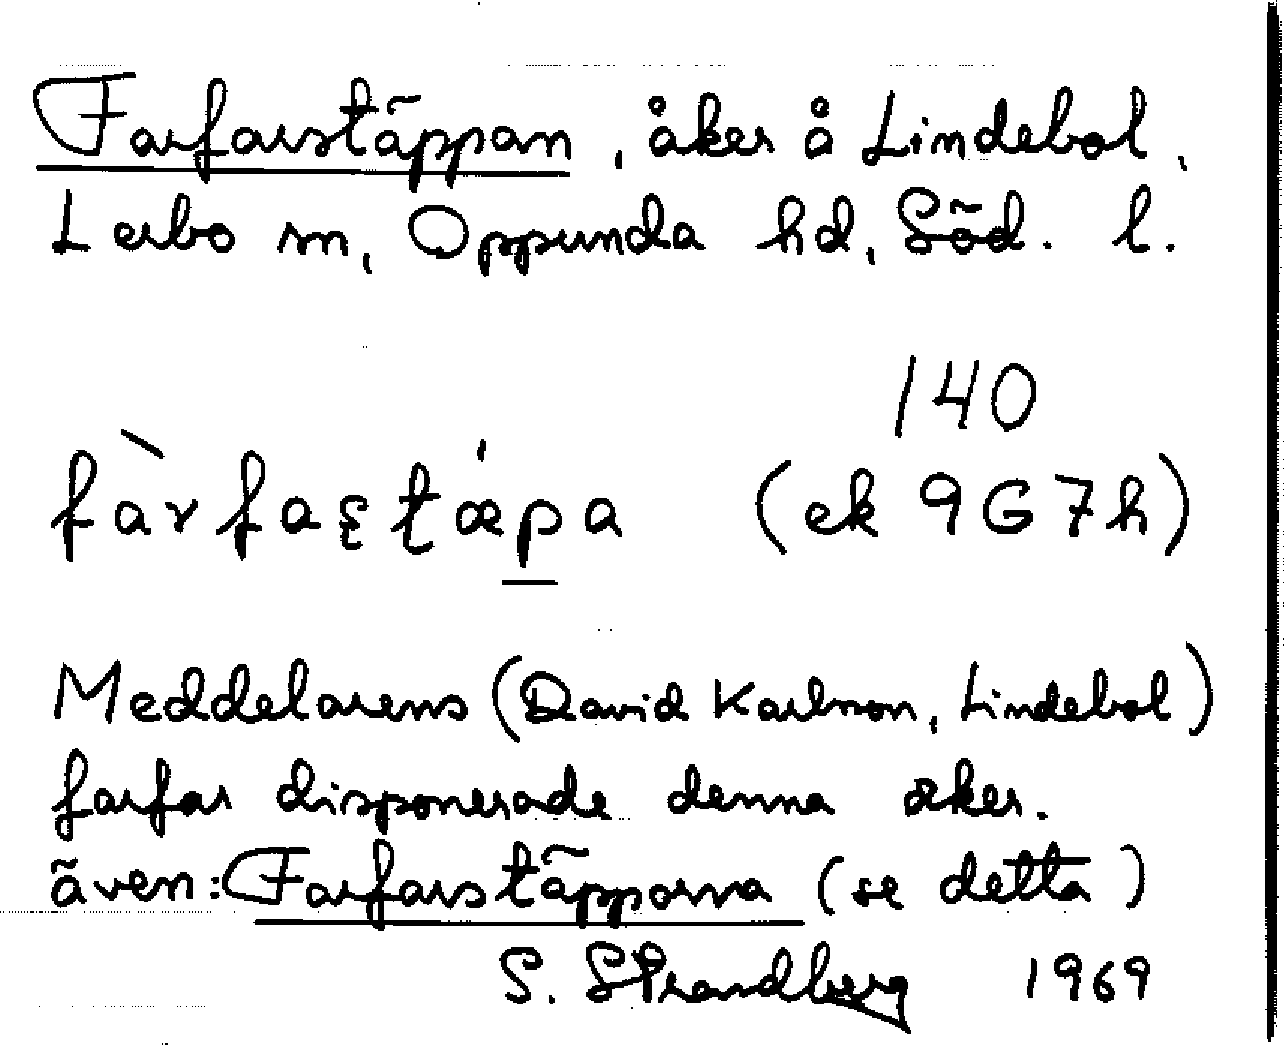 Farfarstäppan, åker å Lindebol,
Lerbo sn, Oppunda hd, Söd. l.
140
fàrfaʂʈæ̍pa (ek 9G7h)
Meddelarens (David Karlsson, Lindebol)
farfar disponerade denna åker.
även: Farfarstäpporna (se detta)
S. Strandberg 1969